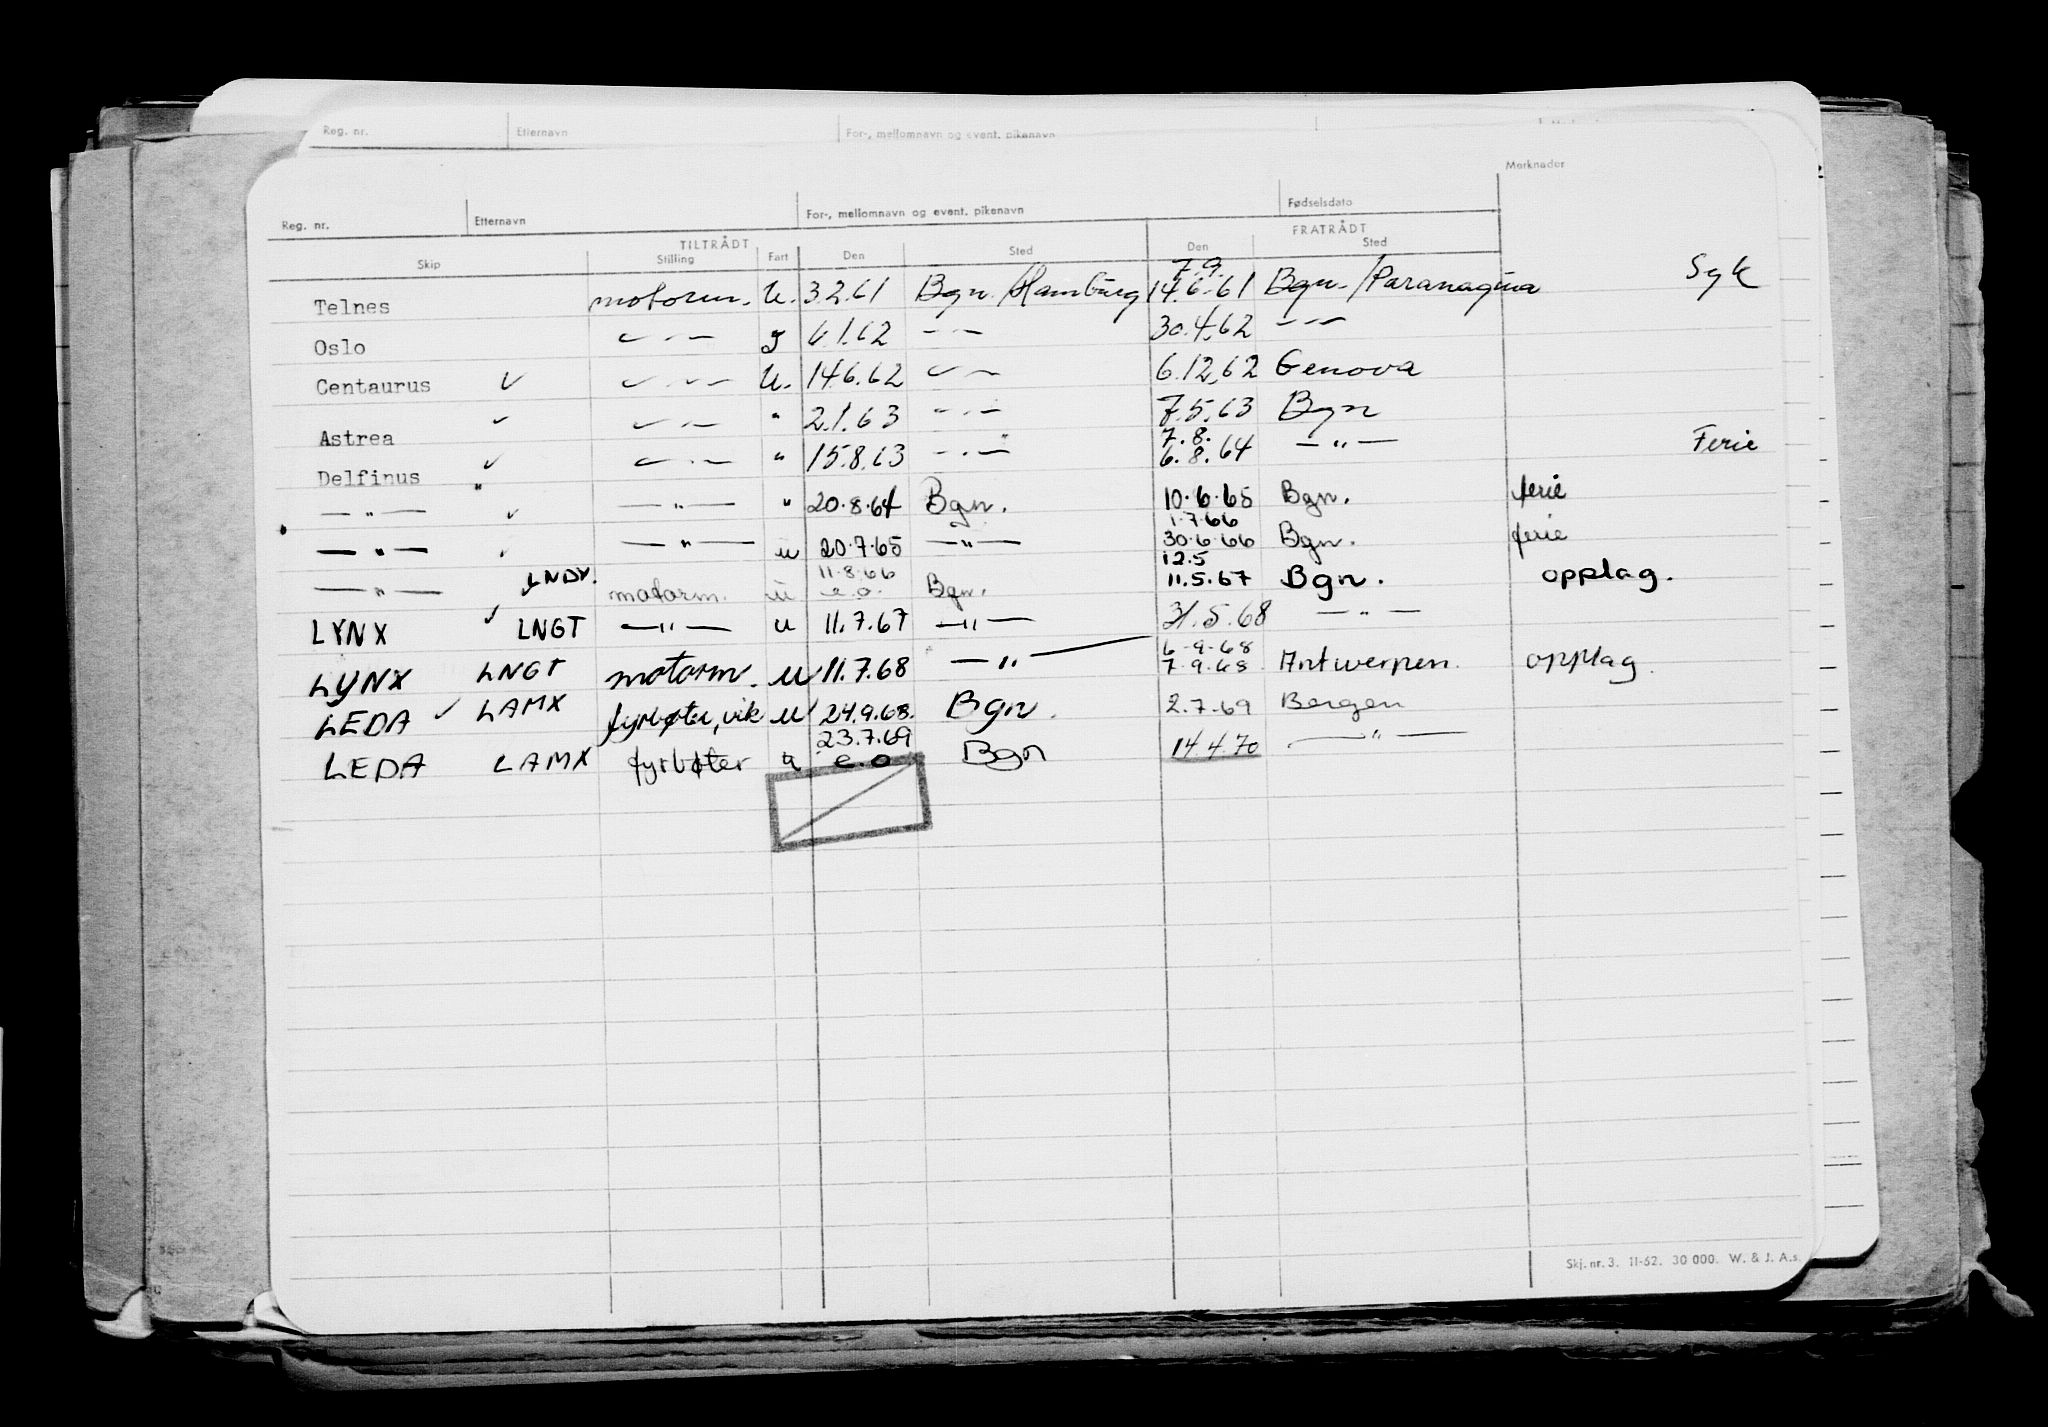 Reg. nr. Etternavn For-, mellomnavn og event. pikenavn
Merknader
Reg. nr. Etternavn For-, mellomnavn og event. pikenavn Fødselsdato
TILTRÅDT FRATRÅDT
Skip Stilling Fart Den Sted Den Sted
7.9.
Telnes motorm. U. 3.2.61 Bgn./Hamburg 14.6.61 Bgn./Paranagua Syk
Oslo — " — g 6.1.62 — " — 30.4.62 — " —
Centaurus ✓ — " — U. 14.6.62 — " — 6.12.62 Genova
Astrea ✓ — " — " 2.1.63 — " — 7.5.63 Bgn
7.8.
Delfinus ✓ — " — " 15.8.63 — " — 6.8.64 — " — Ferie
— " — " ✓ — " — " 20.8.64 Bgn. 10.6.65 Bgn. ferie
1.7.66
— " — ✓ — " — u 20.7.65 — " — 30.6.66 Bgn. ferie
11.8.66 12.5
— " — LNDV. motorm. u e.o. Bgn. 11.5.67 Bgn. opplag.
LYNX ✓ LNGT — " — u 11.7.67 — " — 31.5.68 — " —
6-9-68
LYNX LNGT motorm. u 11.7.68 — " — 7.9.68 Antwerpen. opplag.
LEDA ✓ LAMX fyrbøter, vik u 24.9.68. Bgn. 2.7.69 Bergen
23.7.69
LEDA LAMX fyrbøter u e.o Bgn 14.4.70 — " —
Skj. nr. 3. 11-62. 30 000. W. & J. A.s.